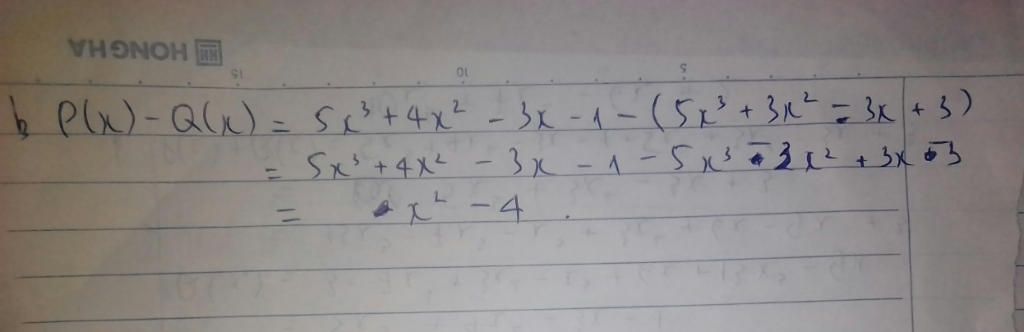 HONGHA
15 10 5
b P(x) - Q(x) = 5x³ + 4x² - 3x - 1 - (5x³ + 3x² - 3x + 3)
= 5x³ + 4x² - 3x - 1 - 5x³ - 3x² + 3x - 3
= x² - 4.